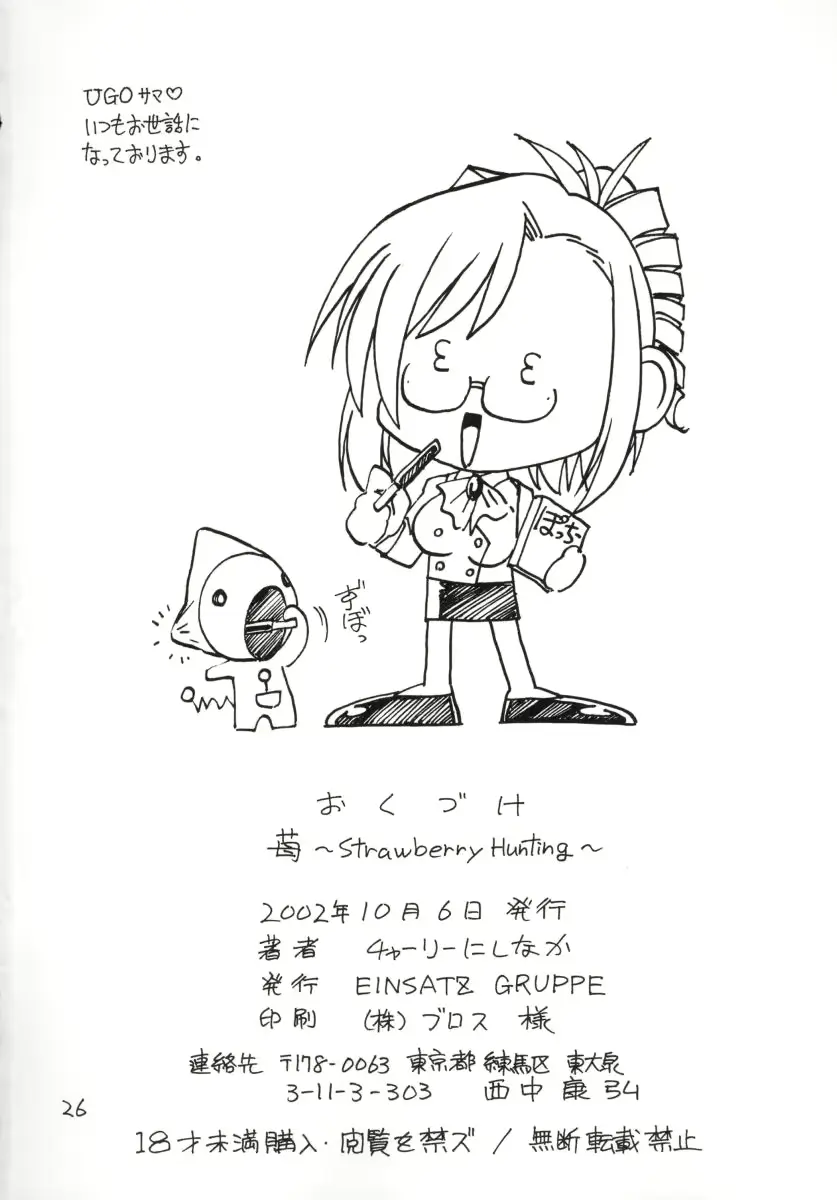 UGOサマ♡
いつもお世話に
なっております。
ぽっちー
ずぼっ
おくづけ
苺～Strawberry Hunting～
2002年10月6日 発行
著者 チャーリーにしなか
発行 EINSATZ GRUPPE
印刷 (株)ブロス 様
連絡先 〒178-0063 東京都 練馬区 東大泉
3-11-3-303 西中康弘
26
18才未満購入・閲覧を禁ズ / 無断転載禁止